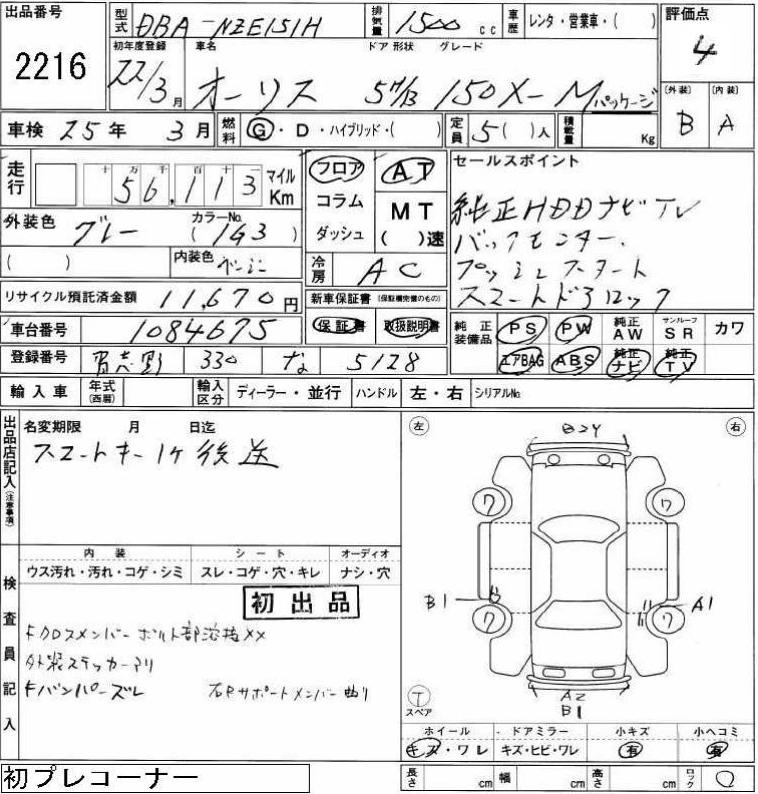 出品番号 2216
型式 DBA-NZE151H
排気量 1500 cc
車歴 レンタ・営業車・( )
評価点 4
初年度登録 22/3月
車名 オーリス
ドア 形状 グレード 5H/B 150X-Mパッケージ
(外装) B (内装) A
車検 25年 3月
燃料 G・D・ハイブリッド・( )
定員 5( )人
積載量 Kg
走行 十万千百十一 56,113 マイル Km
フロア コラム ダッシュ
AT MT ( )速
セールスポイント
純正HDDナビTV
バックモニター、
プッシュスタート
スマートドアロック
外装色 グレー カラーNo. (1G3)
( ) 内装色
冷房 AC
リサイクル預託済金額 11,670円
新車保証書 (保証欄完備のもの)
保証書 取扱説明書
車台番号 1084675
純正装備品 PS PW 純正AW サンルーフSR カワ
エアBAG ABS 純正ナビ 純正TV
登録番号 習志野 330 な 5128
輸入車 年式(西暦) 輸入区分 ディーラー・並行 ハンドル 左・右 シリアルNo.
出品店記入(注意事項)
名変期限 月 日迄
スマートキー1ケ後送
左 右
B24
ワ ワ
B1 A1
ワ ワ
A2
B1
T スペア
検査員記入
内装 シート オーディオ
ウス汚れ・汚れ・コゲ・シミ スレ・コゲ・穴・キレ ナシ・穴
初出品
Fクロスメンバーボルト部溶接××
外装ステッカーアリ
Fバンパーズレ 右Rサポートメンバー曲り
ホイール・ドアミラー 小キズ 小ヘコミ
キズ・ワレ キズ・ヒビ・ワレ 有 有
初プレコーナー
長さ cm 幅 cm 高さ cm ロック